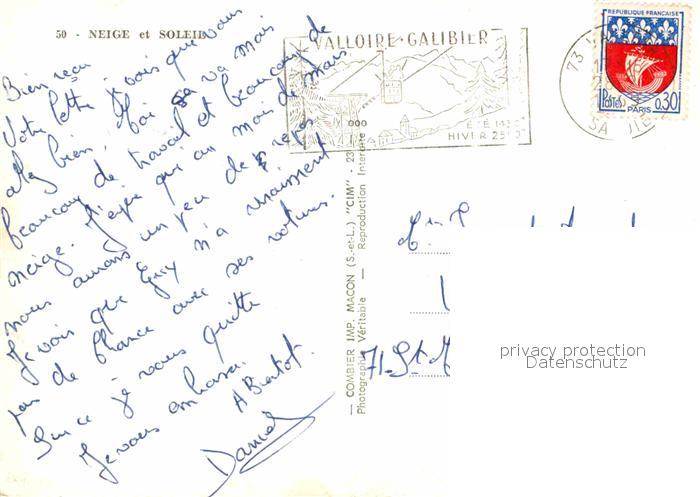 50 - NEIGE et SOLEIL
Bien reçu
votre lettre, je vois que vous
allez bien. Moi ça va mais
beaucoup de travail et beaucoup de
neige. J'espère qu'au mois de Mars
nous aurons un peu de repos.
Je vois que Guy n'a vraiment
pas de chance avec ses voitures.
Sur ce je vous quitte
Je vous embrasse.
A Bientot.
Daniel
— COMBIER IMP. MACON (S.-et-L.) "CIM" - 23
Photographie Véritable — Reproduction Interdite
VALLOIRE-GALIBIER
ÉTÉ 14
HIVER 25
73
REPUBLIQUE FRANÇAISE
POSTES
0.30
PARIS
71. St
privacy protection
Datenschutz